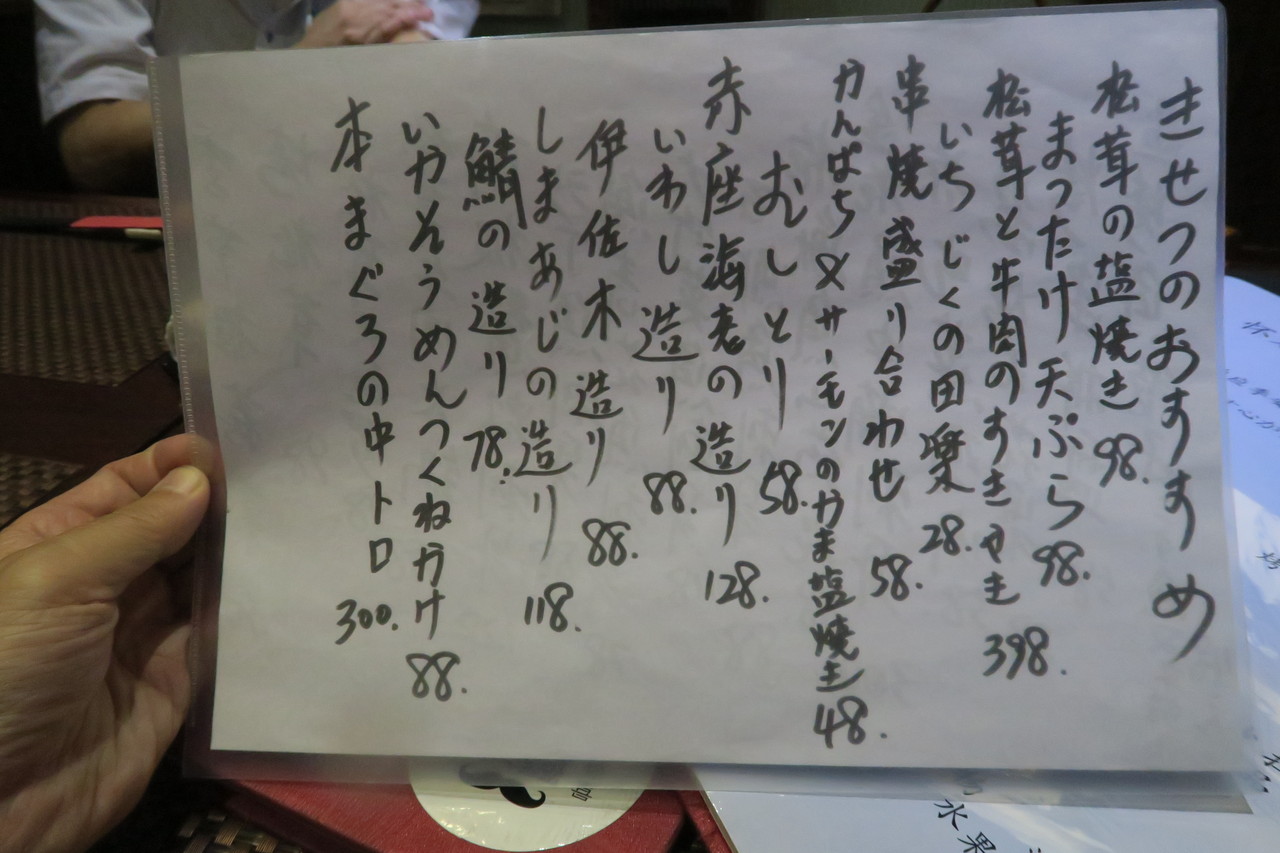 きせつのおすすめ
松茸の塩焼き 98.
まつたけ天ぷら 98.
松茸と牛肉のすきやき 398.
いちじくの田楽 28.
串焼盛り合わせ 58.
かんぱち〆サーモンのかま塩焼き 48.
むしとり 58.
赤座海老の造り 128.
いわし造り 88.
伊佐木造り 88.
しまあじの造り 118.
鯖の造り 78.
いかそうめんつくねかけ 88.
本まぐろの中トロ 300.
水果